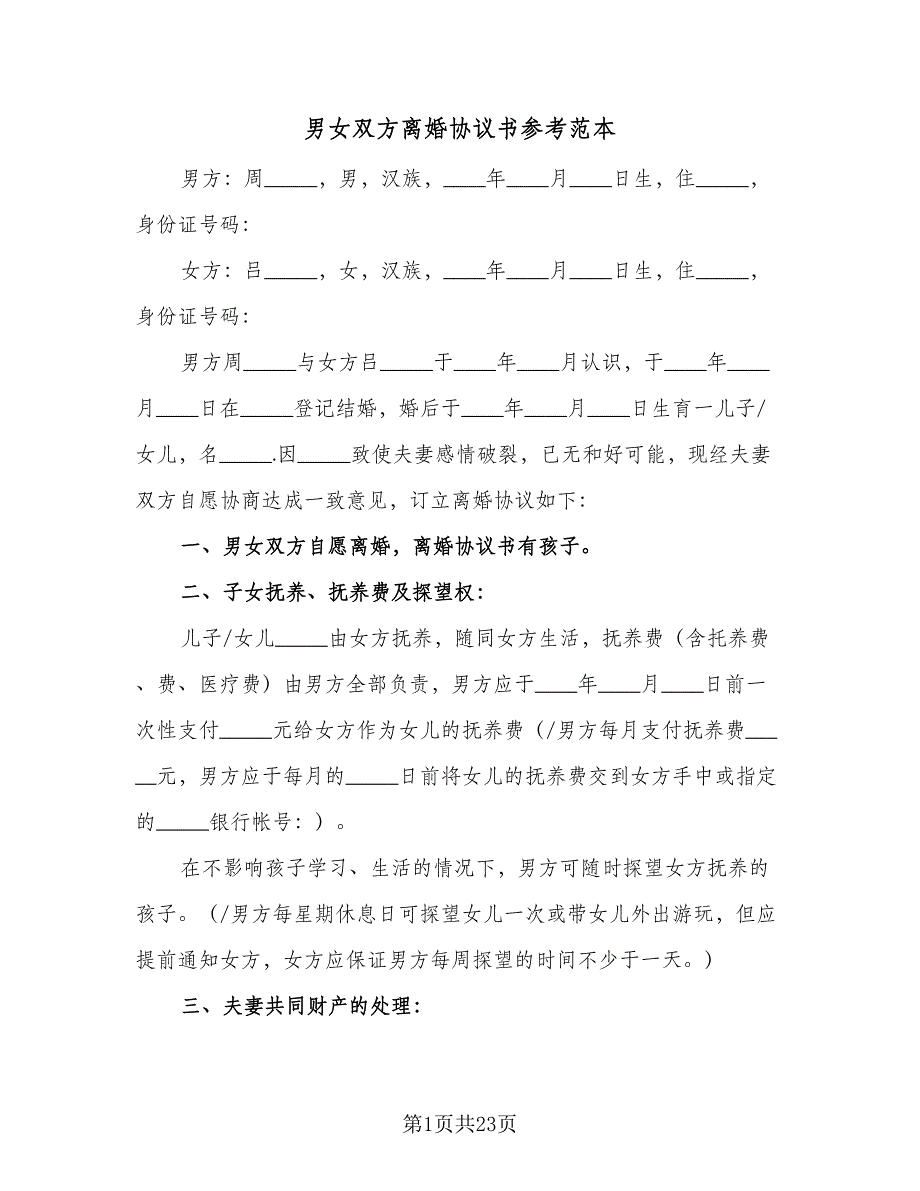 男女双方离婚协议书参考范本
男方：周_____，男，汉族，____年____月____日生，住_____，
身份证号码：
女方：吕_____，女，汉族，____年____月____日生，住_____，
身份证号码：
男方周_____与女方吕_____于____年____月认识，于____年____
月____日在_____登记结婚，婚后于____年____月____日生育一儿子/
女儿，名_____.因_____致使夫妻感情破裂，已无和好可能，现经夫妻
双方自愿协商达成一致意见，订立离婚协议如下：
一、男女双方自愿离婚，离婚协议书有孩子。
二、子女抚养、抚养费及探望权：
儿子/女儿_____由女方抚养，随同女方生活，抚养费（含托养费
、费、医疗费）由男方全部负责，男方应于____年____月____日前一
次性支付_____元给女方作为女儿的抚养费（/男方每月支付抚养费___
__元，男方应于每月的_____日前将女儿的抚养费交到女方手中或指定
的_____银行帐号：）。
在不影响孩子学习、生活的情况下，男方可随时探望女方抚养的
孩子。（/男方每星期休息日可探望女儿一次或带女儿外出游玩，但应
提前通知女方，女方应保证男方每周探望的时间不少于一天。）
三、夫妻共同财产的处理：
第1页共23页